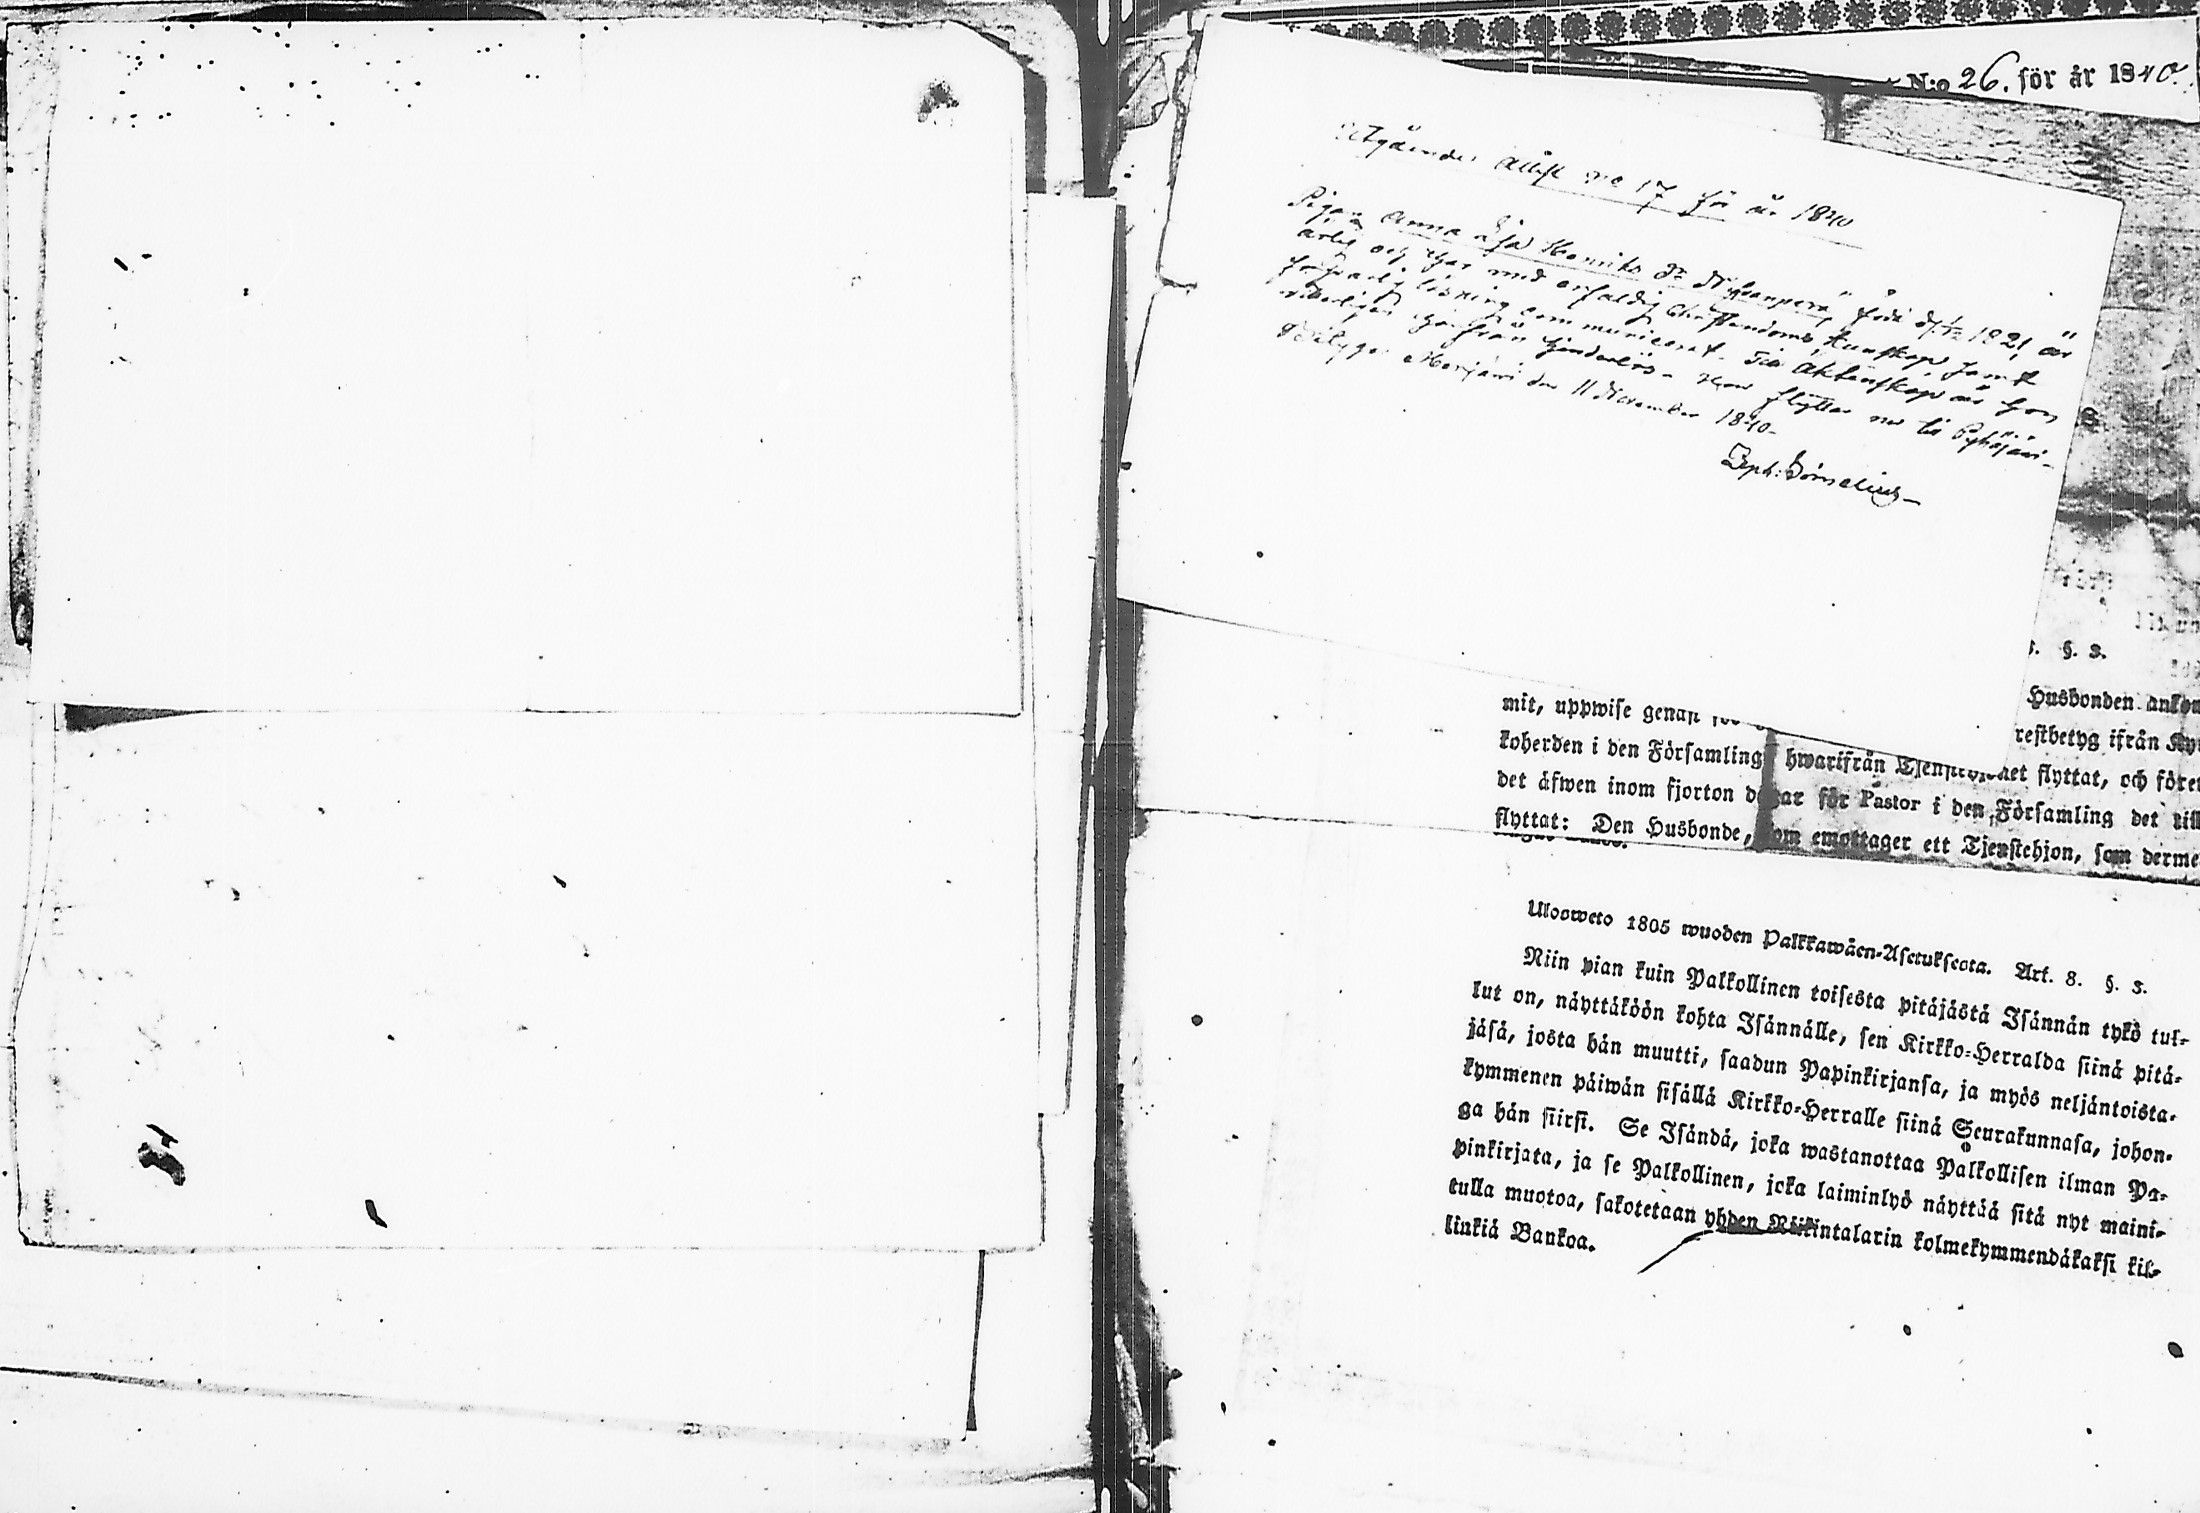 N:o 26. för år 1840.
Utgående attest No 17 för år 1840
Pigan Anna Lisa Henriks dr född 1821, är
ärlig och har med enfaldig Christendoms kunskap samt
försvarlig läsning communicerat. Till Äktenskap är hon
härifrån hinderlös. Hon flyttar nu till Pyhäjärvi.
Merijärvi den 11 November 1840.
Zeph:
§. 3.
Husbonden
mit, uppwise genast
restbetyg ifrån
koherden i den Församling hwarifrån flyttat, och
det äfwen inom fjorton dagar för Pastor i den Församling det
flyttat: Den Husbonde, som emottager ett Tjenstehjon, som
Ulosweto 1805 wuoden Palkkawäen-Asetuksesta. Art. 8. §. 3.
Niin pian kuin Palkollinen toisesta pitäjästä Isännän tykö tul-
lut on, näyttäköön kohta Isännälle, sen Kirkko-Herralda siinä pitä-
jäsä, josta hän muutti, saadun Papinkirjansa, ja myös neljäntoista-
kymmenen päiwän sisällä Kirkko-Herralle siinä Seurakunnasa, johon-
ga hän siirsi. Se Isändä, joka wastanottaa Palkollisen ilman Pa-
pinkirjata, ja se Palkollinen, joka laiminlyö näyttää sitä nyt maini-
tulla muotoa, sakotetaan yhden Riikintalarin kolmekymmendäkaksi kil-
linkiä Bankoa.